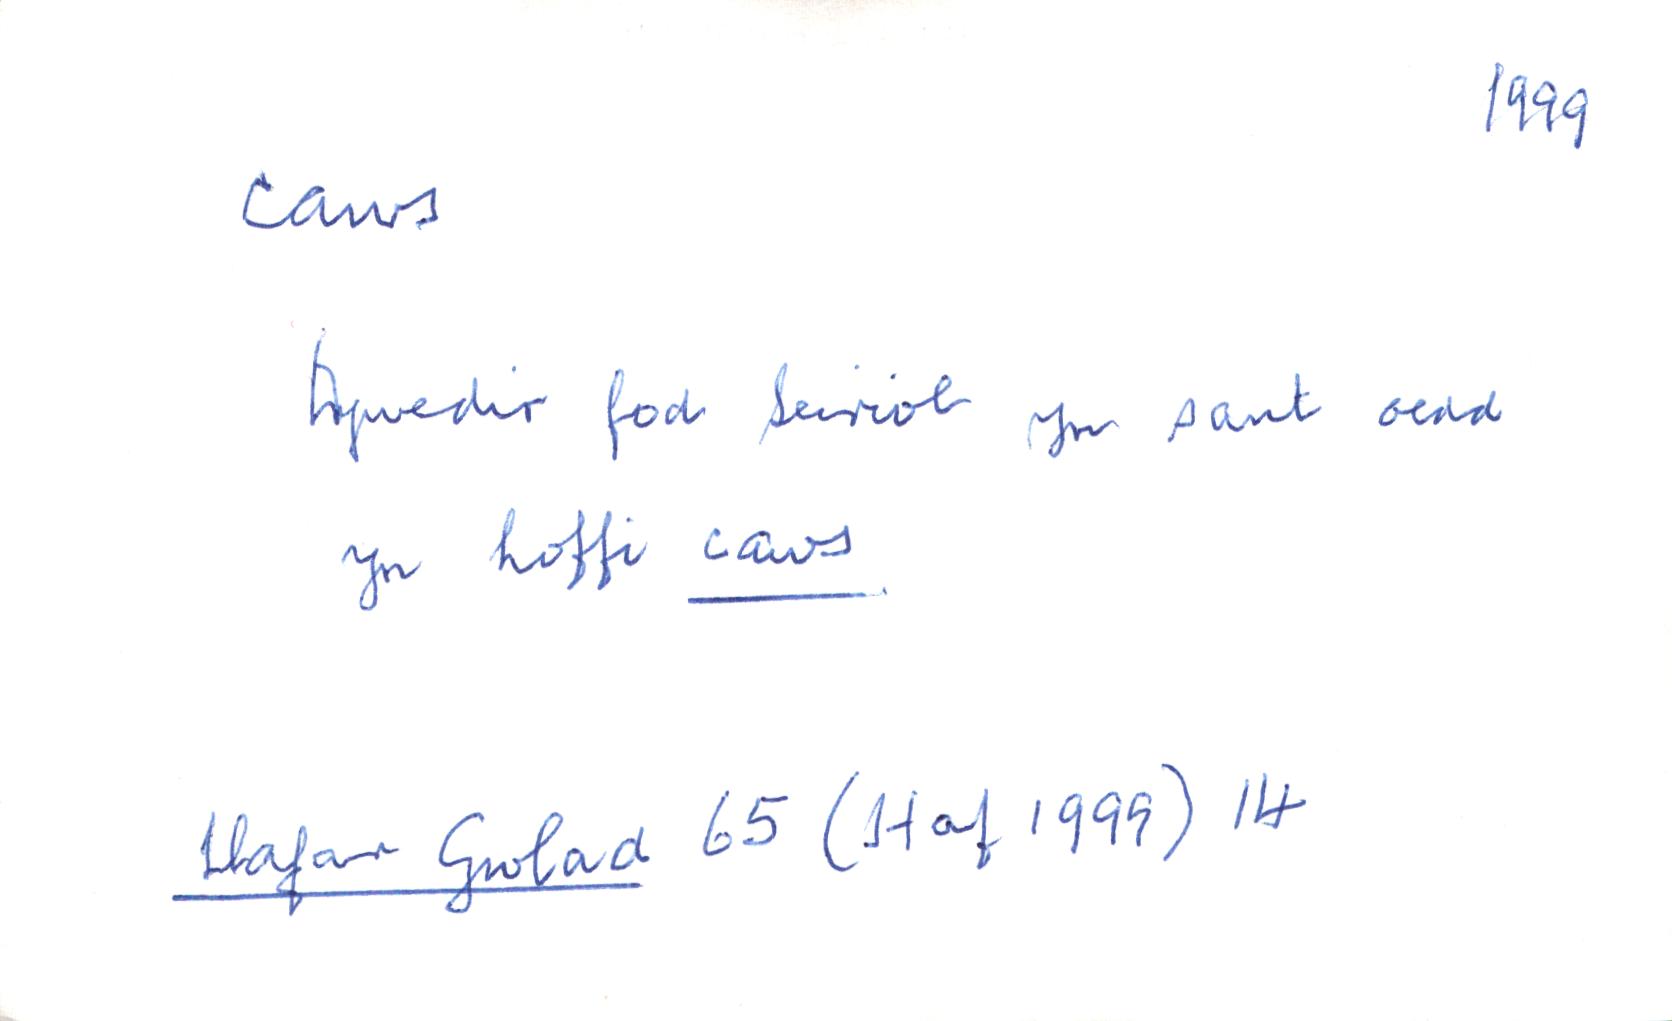 1999
caws
Dywedir fod Seiriol yn sant oedd
yn hoffi caws
Llafar Gwlad 65 (Haf 1999) 14